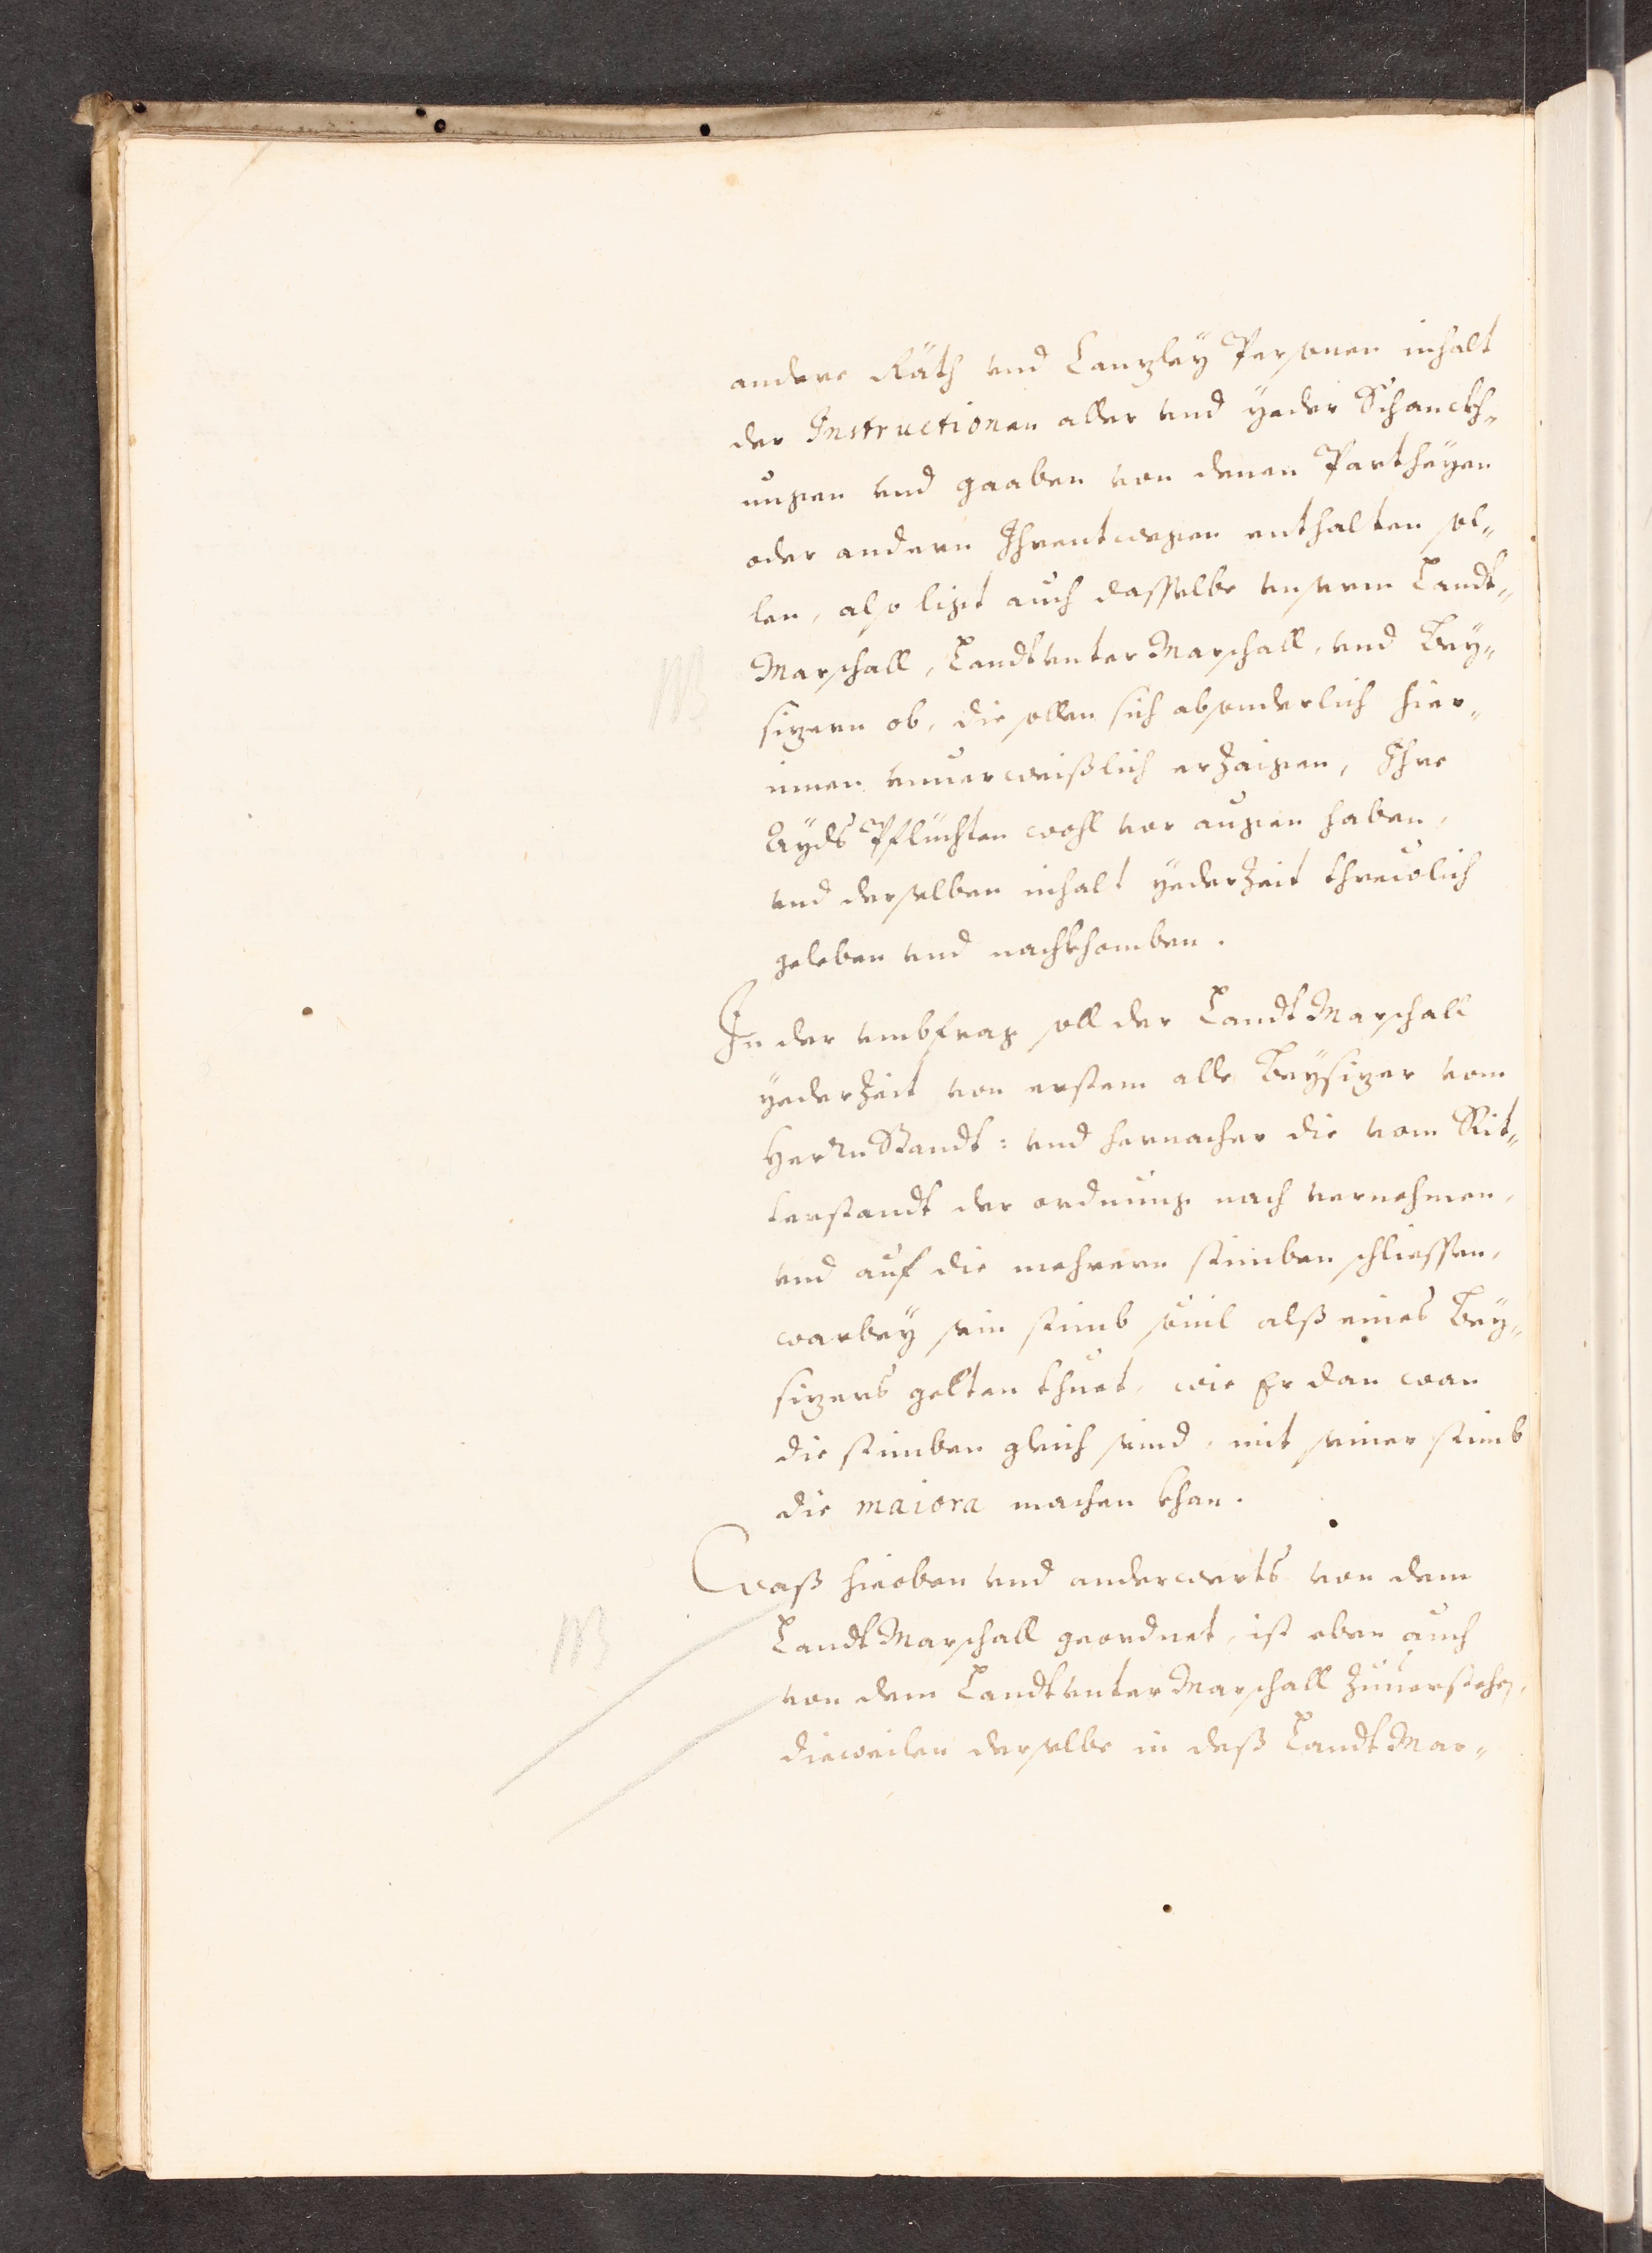 andere Räth vnd Canzley Personen inhalt
der Instructionen aller vnd yeder Schanckh¬
ungen vnd gaaben von denen Partheyen
oder andern Ihrentwegen enthalten sol¬
len, also ligt auch dasselbe vnserm Landt¬
Marschall, Landtvnter Marschall, vnd Bey¬
NB
sizern ob, die sollen sich absonderlich hier¬
innen vnuerweißlich erzaigen, Ihre
Ayds Pflüchten wohl vor augen haben,
vnd derselben inhalt yederzeit threwlich
geleben vnd nachkhomben.
In der vmbfrag soll der Landt Marschall
yederzeit von erstem alle Beysizer vom
Herrn Standt: vnd hernacher die vom Rit¬
terstandt der ordnung nach vernehmen,
vnd auf die mehrern stimben schliessen,
warbey sein stimb souil alß eines Bey¬
sizers gelten thuet, wie Er dan wan
die stimben gleich seind, mit seiner stimb
die maiora machen khan.
Waß hieoben vnd anderwerts von dem
NB
Landt Marschall geordnet, ist eben auch
von dem Landtvnter Marschall zuuerstehen,
dieweilen derselbe in deß Landt Mar¬